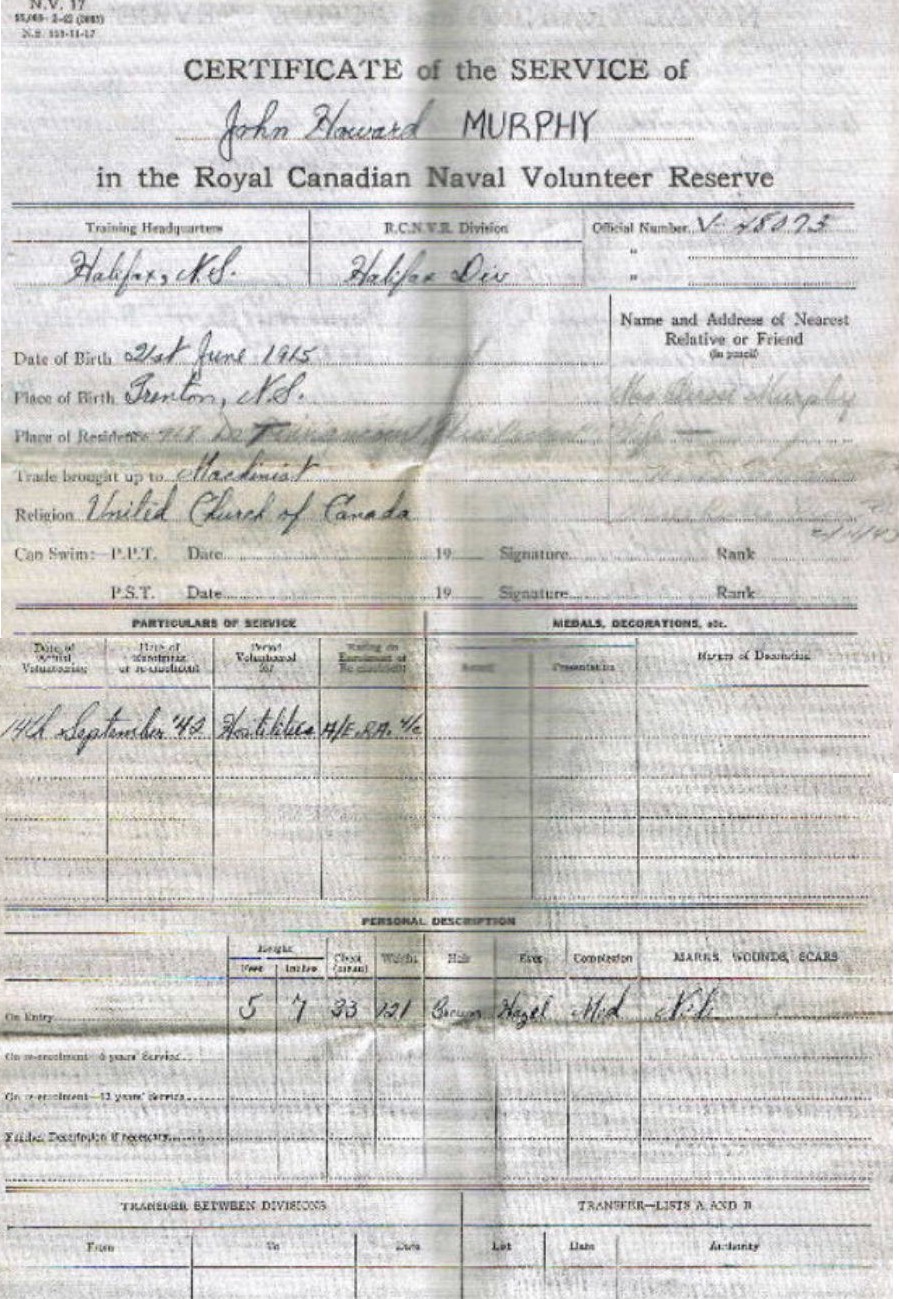 N.V. 17
CERTIFICATE of the SERVICE of
John Howard MURPHY
in the Royal Canadian Naval Volunteer Reserve
Training Headquarters R.C.N.V.R. Division Official Number V- 48073
Halifax, N.S. Halifax Div "
"
Name and Address of Nearest
Relative or Friend
(in pencil)
Date of Birth 21st June 1915
Place of Birth Trenton, N.S. Murphy
Place of Residence Wife
Trade brought up to Machinist
Religion United Church of Canada
Can Swim:- P.P.T. Date 19 Signature Rank
P.S.T. Date 19 Signature Rank
PARTICULARS OF SERVICE MEDALS, DECORATIONS, etc.
Date of Actual Volunteering Date of Enrolment or re-enrolment Period Volunteered for Rating on Enrolment or Re-enrolment Presentation Nature of Decoration
14th September '42 Hostilities A/E.R.A. 4/c
PERSONAL DESCRIPTION
Height
Feet Inches Chest (mean) Weight Hair Eyes Complexion MARKS, WOUNDS, SCARS
On Entry 5 7 33 121 Brown Hazel Med Nil
On re-enrolment—6 years' Service
On re-enrolment—12 years' Service
Further Description if necessary
TRANSFER BETWEEN DIVISIONS TRANSFER—LISTS A AND B
From To Date List Date Authority